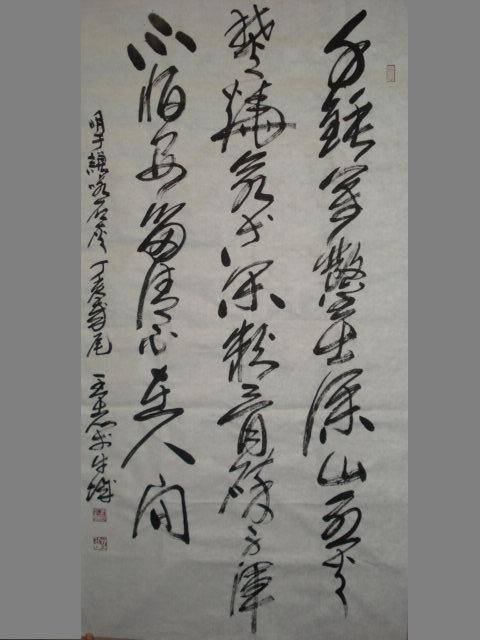 千錘萬鑿出深山烈火
焚燒若等閑粉骨碎身渾
不怕要留清白在人間
明于謙咏石灰 丁亥歲尾 于牛城